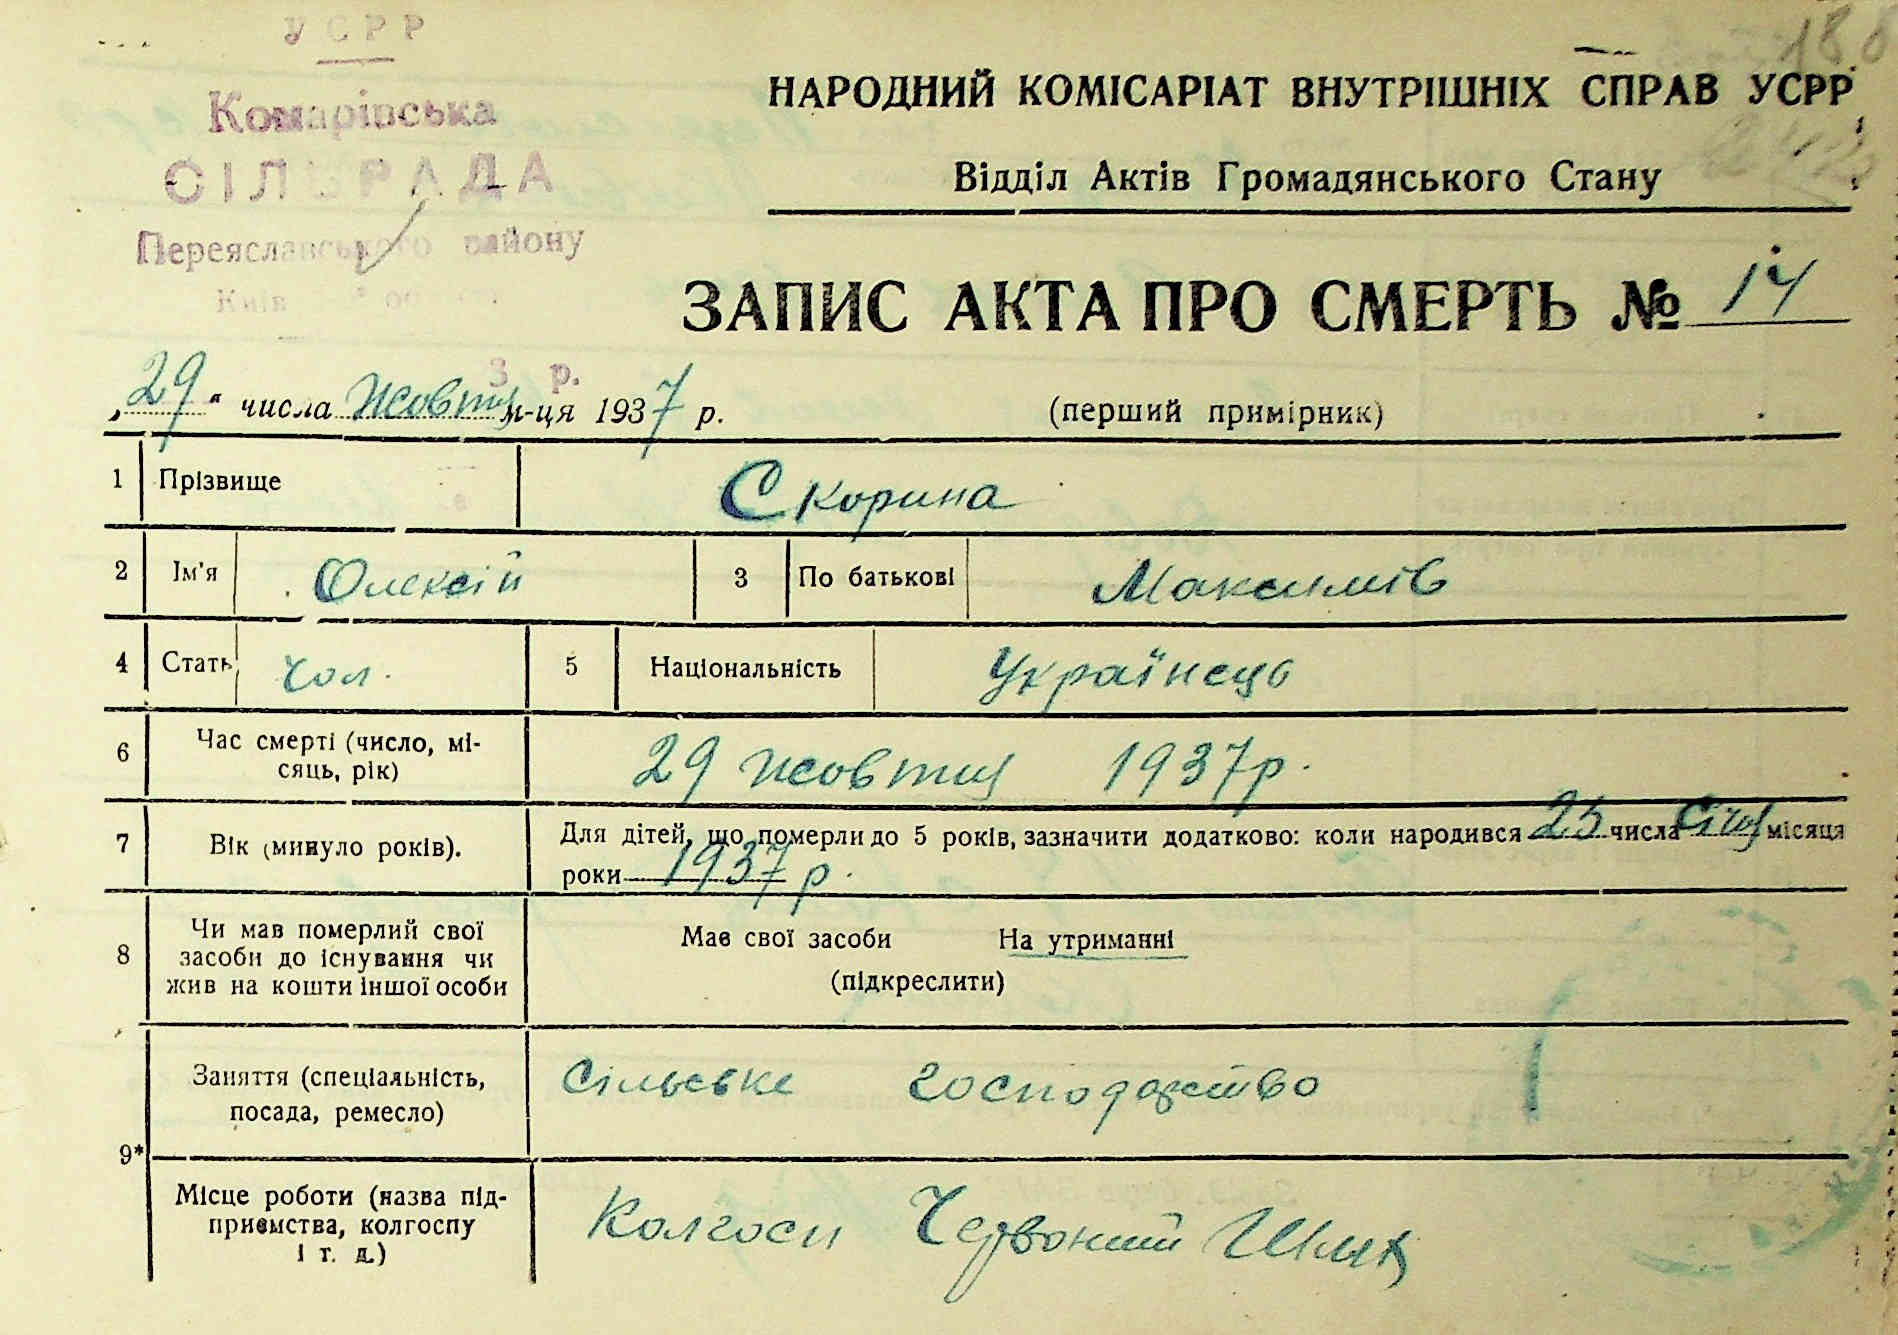 УСРР
Комарівська
СІЛЬРАДА
Переяславського району
188
НАРОДНИЙ КОМІСАРІАТ ВНУТРІШНІХ СПРАВ УСРР
Відділ Актів Громадянського Стану
ЗАПИС АКТА ПРО СМЕРТЬ № 14
„29“ числа Жовтня м-ця 1937 р.
(перший примірник)
1 Прізвище Скорина
2 Ім'я Олексій 3 По батькові Максимів
4 Стать чол. 5 Національність Українець
6 Час смерті (число, мі-
сяць, рік) 29 жовтня 1937 р.
7 Вік (минуло років). Для дітей, що померли до 5 років, зазначити додатково: коли народився 25 числа Січня місяця
роки 1937 р.
8 Чи мав померлий свої
засоби до існування чи
жив на кошти іншої особи
Має свої засоби На утриманні
(підкреслити)
9*
Заняття (спеціальність,
посада, ремесло) Сільське господарство
Місце роботи (назва під-
приємства, колгоспу
і т. д.) Колгосп Червоний Шлях